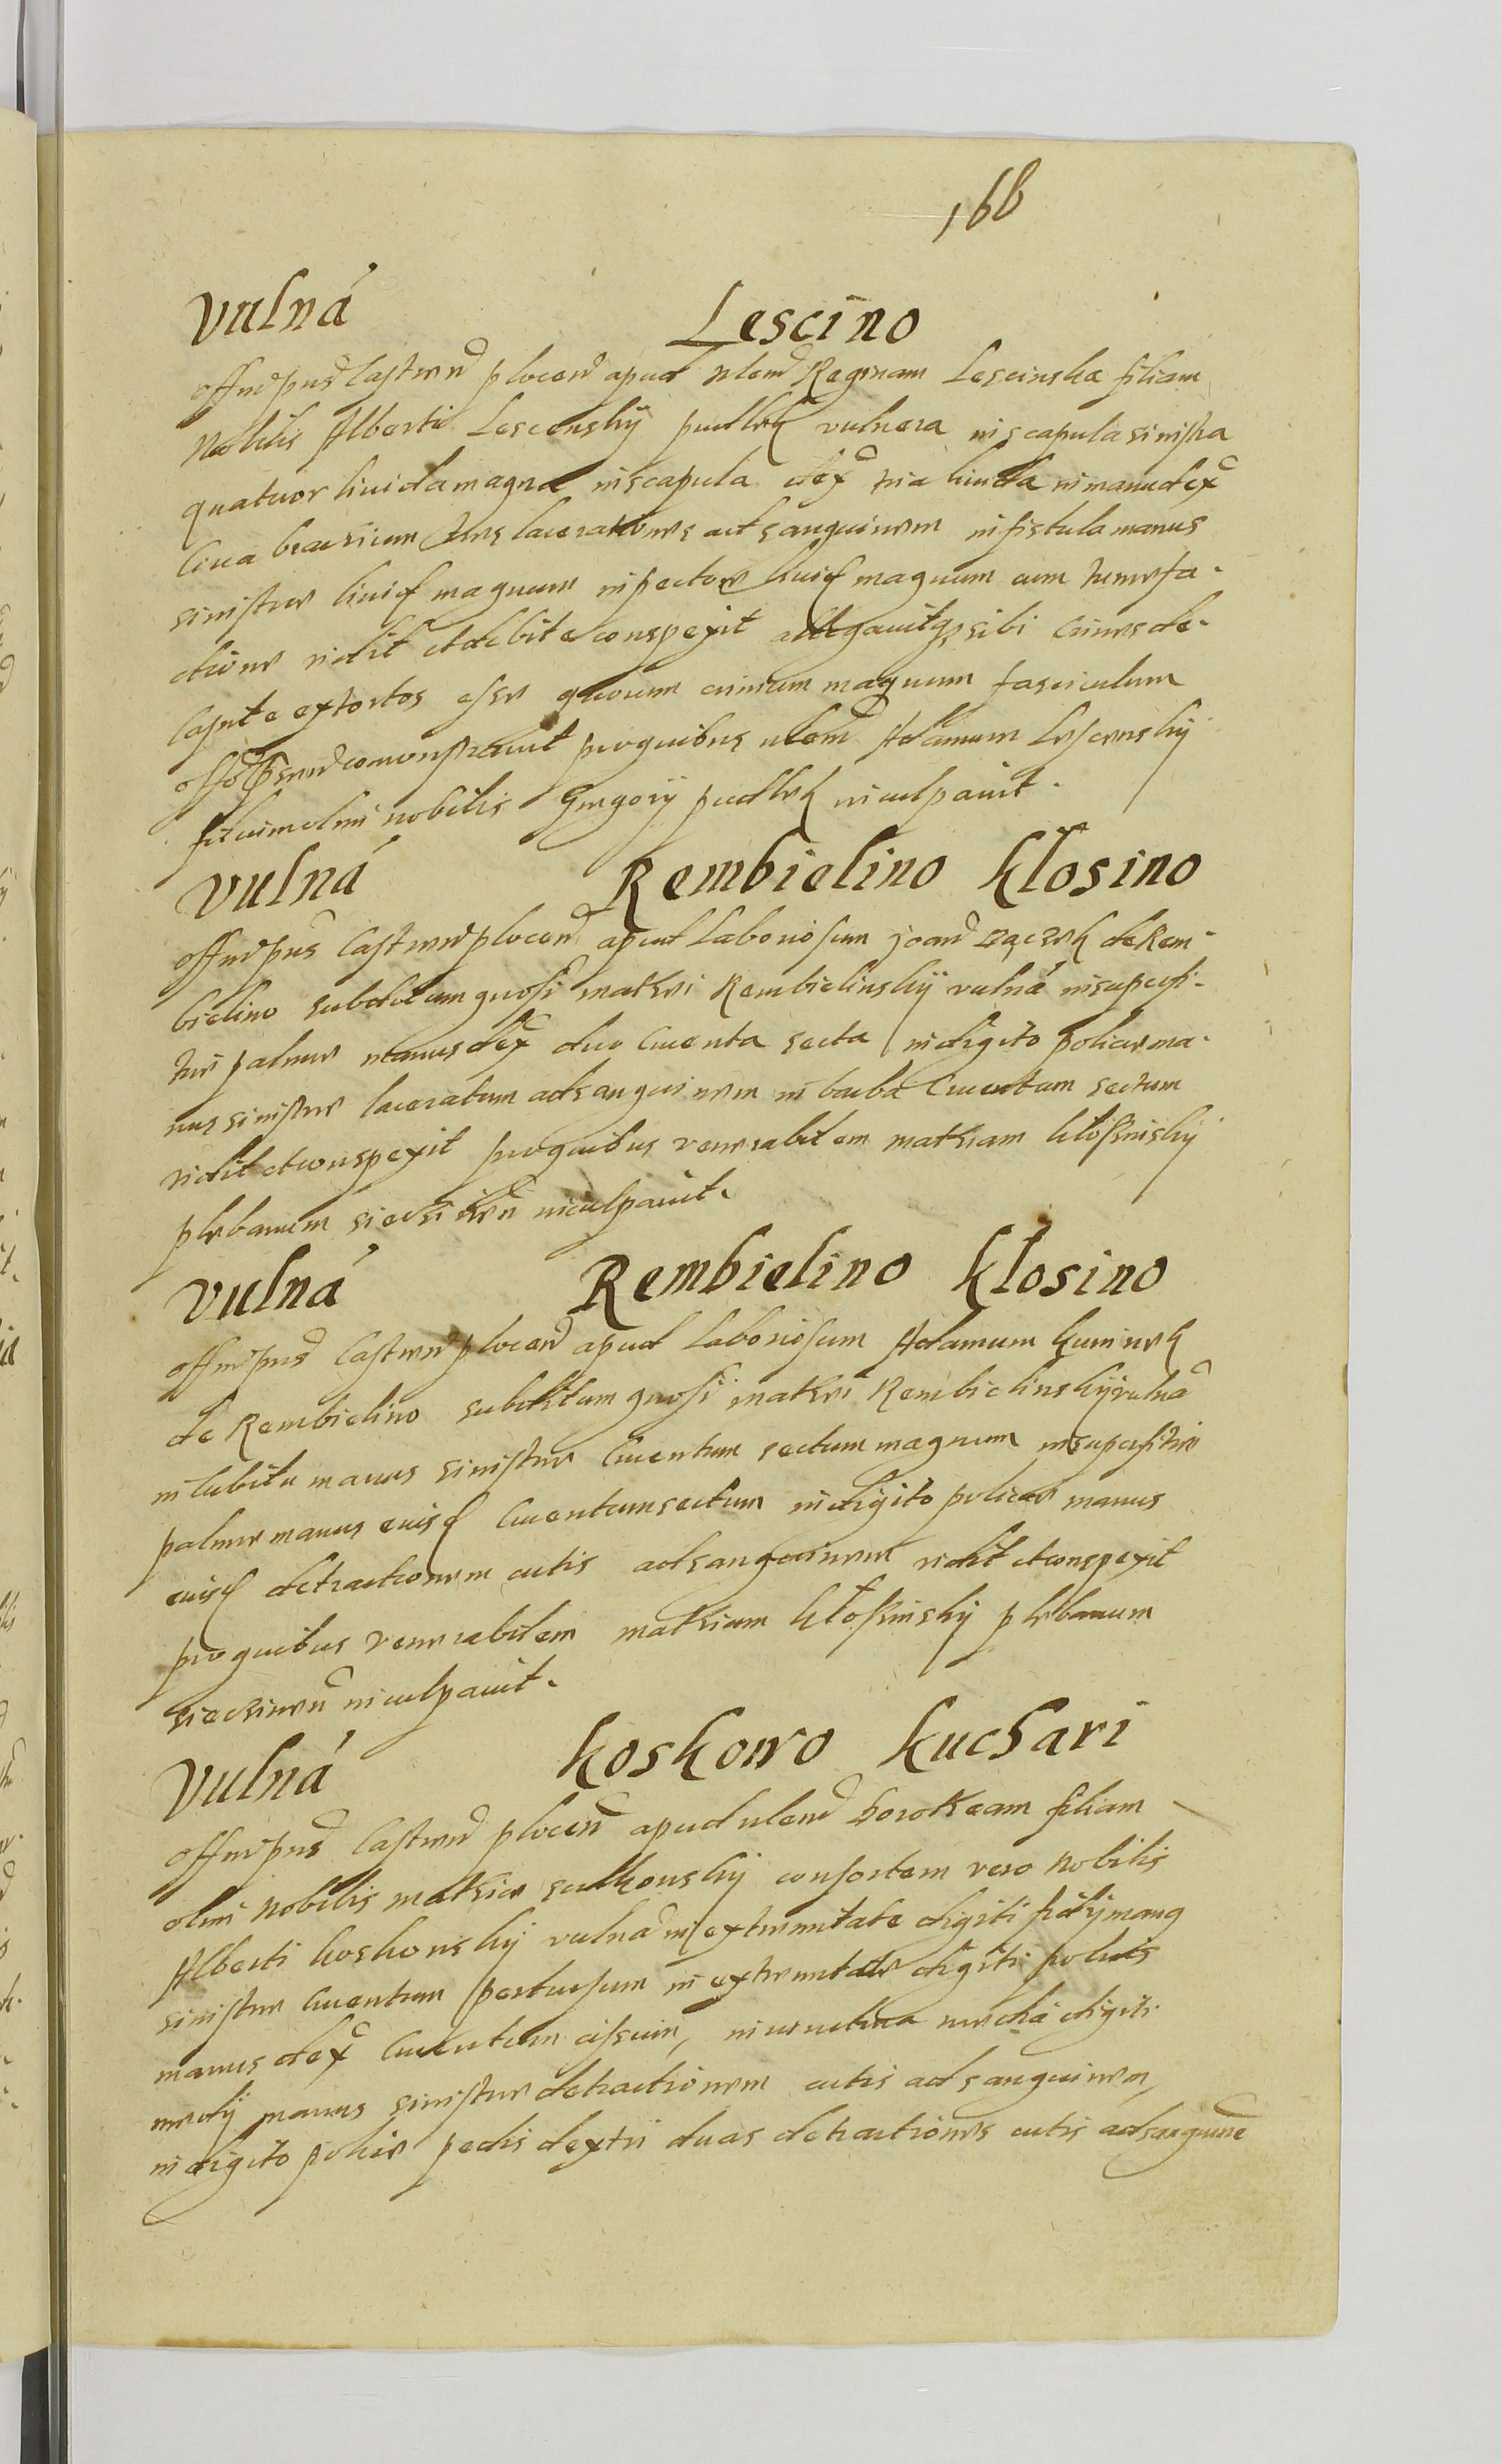 166
Vulná Lescino
offm pns Castren plocen apud nlem Reginam Lescinska filiam
Nobilis Alberti Lescenskÿ pudlek vulnera in scapula sinistra
quatuor liuida magna in scapula dex tria liuida in manu dex
Circa bracsium tres lacerationes ad sanguinem in fistula manus
sinistre liuid magnum in pectore liuid magnum cum tumefa-
ctione vidit et debite conspexit allegauitqz sibi crines de-
Capite extortos esse quorum crinium magnum fasciculum
offo comonstrauit pro quibus nlem Adamum Lescenskÿ
filium olim nobilis Gregorÿ pudlek inculpauit.
Vulná Rembielino Kłosino
offm pns Castren plocen apud Laboriosum Joan ZączeK de Rem-
bielino subditum gnosi mathei Rembielinskÿ vulná in superfi-
tie palme manus dex duo Cruenta secta in digito police ma-
nus sinistre laceratum ad sanguinem in barba Cruentum sectum
vidit et conspexit pro quibus venerabilem mathiam kłossinskÿ
plebanum inculpauit.
Vulná Rembielino Kłosino
offm pns Castren plocen apud Laboriosum Adamum
de Rembielino subditum gnosi mathei Rembielinskÿ vulná
in Cubitu manus sinistre Cruentum sectum magnum in superfitie
palme manus eiusd Cruentum sectum in digito police manus
eiusd detractionem cutis ad sanguinem vidit et conspexit
pro quibus venerabilem mathiam kłossinskÿ plebanum
inculpauit.
Vulná Koskowo Kuchari
offm pns Castren plocen apud nlem Dorotheam filiam
olim Nobilis mathie sulkonskÿ consortem vero Nobilis
Alberti koskonskÿ vulná in extremitate digiti manus
sinistre Cruentum pertusum in extremitate digiti policis
manus dex Cruentum cissum, in iunctura media digiti
medÿ manus sinistre detractionem cutis ad sanguinem,
in digito police pedis dextri duas detractiones cutis ad sanguine